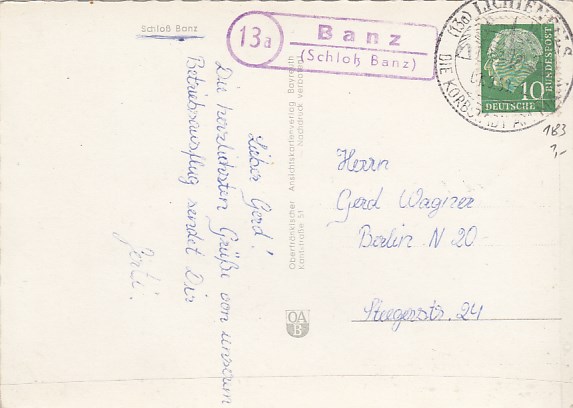 Schloß Banz
13a
Banz
(Schloß Banz)
(13a) LICHTENFELS
DIE KORBSTADT
DEUTSCHE
BUNDESPOST
10
183
1,-
Lieber Gerd!
Die herzlichsten Grüße von unserem
Betriebsausflug sendet Dir
Oberfränkischer Ansichtskartenverlag Bayreuth
Kantstraße 51 — Nachdruck verboten
OA
B
Herrn
Gerd Wagner
Berlin N 20
Stegerstr. 24